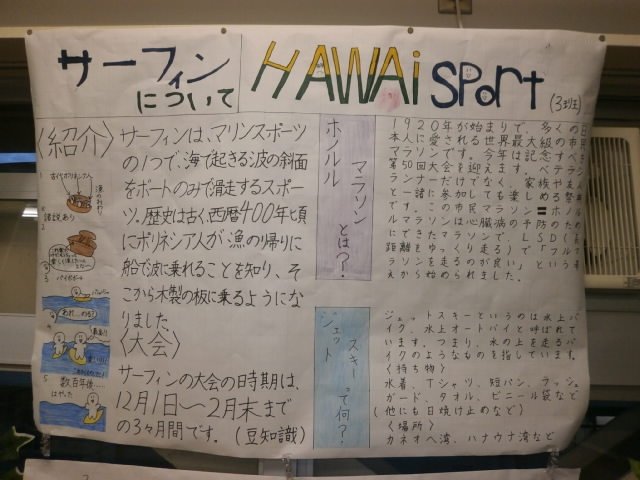 サーフィン
について
HAWAii sport
(3班)
〈紹介〉
サーフィンは、マリンスポーツ
の1つで、海で起きる波の斜面
をボートのみで滑走するスポー
ツ。歴史は古く、西暦400年頃
にポリネシア人が漁の帰りに
船で波に乗れることを知り、そ
こから木製の板に乗るようにな
りました。
〈大会〉
サーフィンの大会の時期は、
12月1日〜2月末まで
の3ヶ月間です。(豆知識)
古代ポリネシア人
漁の帰り
諸説あり
数百年後……
ホノルル
マラソン
とは?
1920年が始まりで、多くの日
本人に愛される世界最大級の市民
マラソンです。今年は記念すべき
第50回大会を迎えます。ベテラン
ランナーだけでなく、家族や友人
と一緒に参加しても楽しめる祭典
です。この市民マラソン=ホノル
ルマラソンは心臓病の予防のため
にできたマラソンで、LSD(長
距離をゆっくり走る)で「フルマ
ラソンを走るのが良い」という考
えから始められました。
ジェット
スキーって何?
ジェットスキーというのは水上バ
イク、水上オートバイと呼ばれて
います。つまり、水の上を走るバ
イクのようなものを指しています。
〈持ち物〉
水着、Tシャツ、短パン、ラッシュ
ガード、タオル、ビニール袋など
(他にも日焼け止めなど)
〈場所〉
カネオヘ湾、ハナウナ湾など